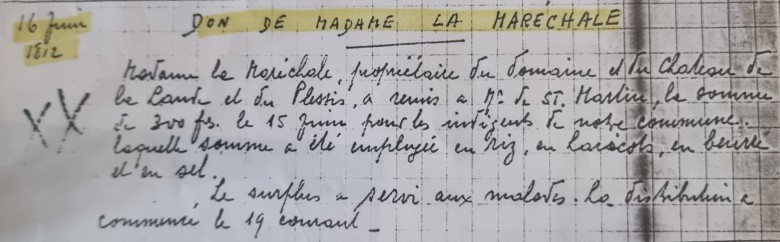 16 Juin
1812
DON DE MADAME LA MARÉCHALE
Madame la Maréchale, propriétaire du domaine et du chateau de
la Lande et du Plessis, a remis a Mr de St. Martin, la somme
de 300 fs. le 15 Juin pour les indigents de notre commune.
laquelle somme a été employée en riz, en haricots, en beurre
et en sel.
Le surplus a servi aux malades. La distribution a
commencé le 19 courant _
XX